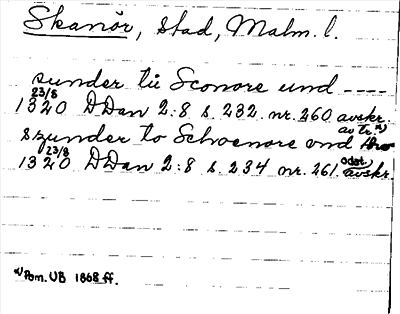 Skanör, stad, Malm. l.
sunder tů Sconore und ----
23/8
1320 DDan 2:8 s. 232. nr. 260 avskr.
av tr. x)
szunder to Schonore vnd
23/8 odat.
1320 DDan 2:8 s. 234 nr. 261. avskr.
x) Pom. UB 1868 ff.